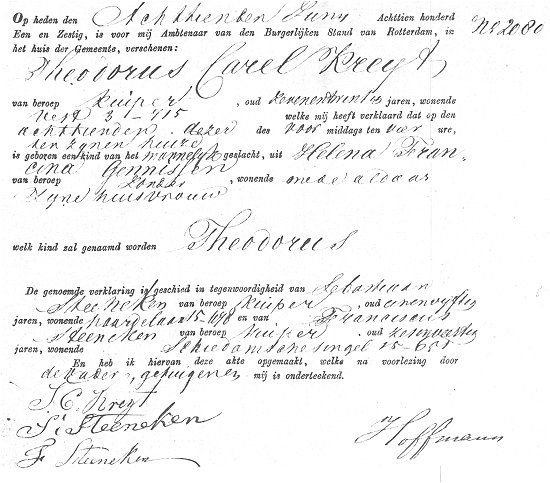 Op heden den Achttienden Juny Achttien honderd No 2080
Een en Zestig, is voor mij Ambtenaar van den Burgerlijken Stand van Rotterdam, in
het huis der Gemeente, verschenen:
Theodorus Carel Kreyt
van beroep kuiper, oud zevenentwintig jaren, wonende
Vest 3-715 welke mij heeft verklaard dat op den
achttienden dezer des voor middags ten vier ure,
ten zynen huize
is geboren een kind van het mannelyk geslacht, uit Helena Fran-
cina Gennissen
van beroep zonder, wonende mede aldaar
zyne huisvrouw
welk kind zal genaamd worden Theodorus
De genoemde verklaring is geschied in tegenwoordigheid van Sebastiaan
Steeneken van beroep kuiper, oud eenenvyftig
jaren, wonende 15-1498 en van Franciscus
Steeneken van beroep kuiper, oud
jaren, wonende Schiedamschesingel 15-655
En heb ik hiervan deze akte opgemaakt, welke na voorlezing door
de vader, getuigen en mij is onderteekend.
T. C. Kreyt
S. Steeneken
F Steeneken
Hoffmann